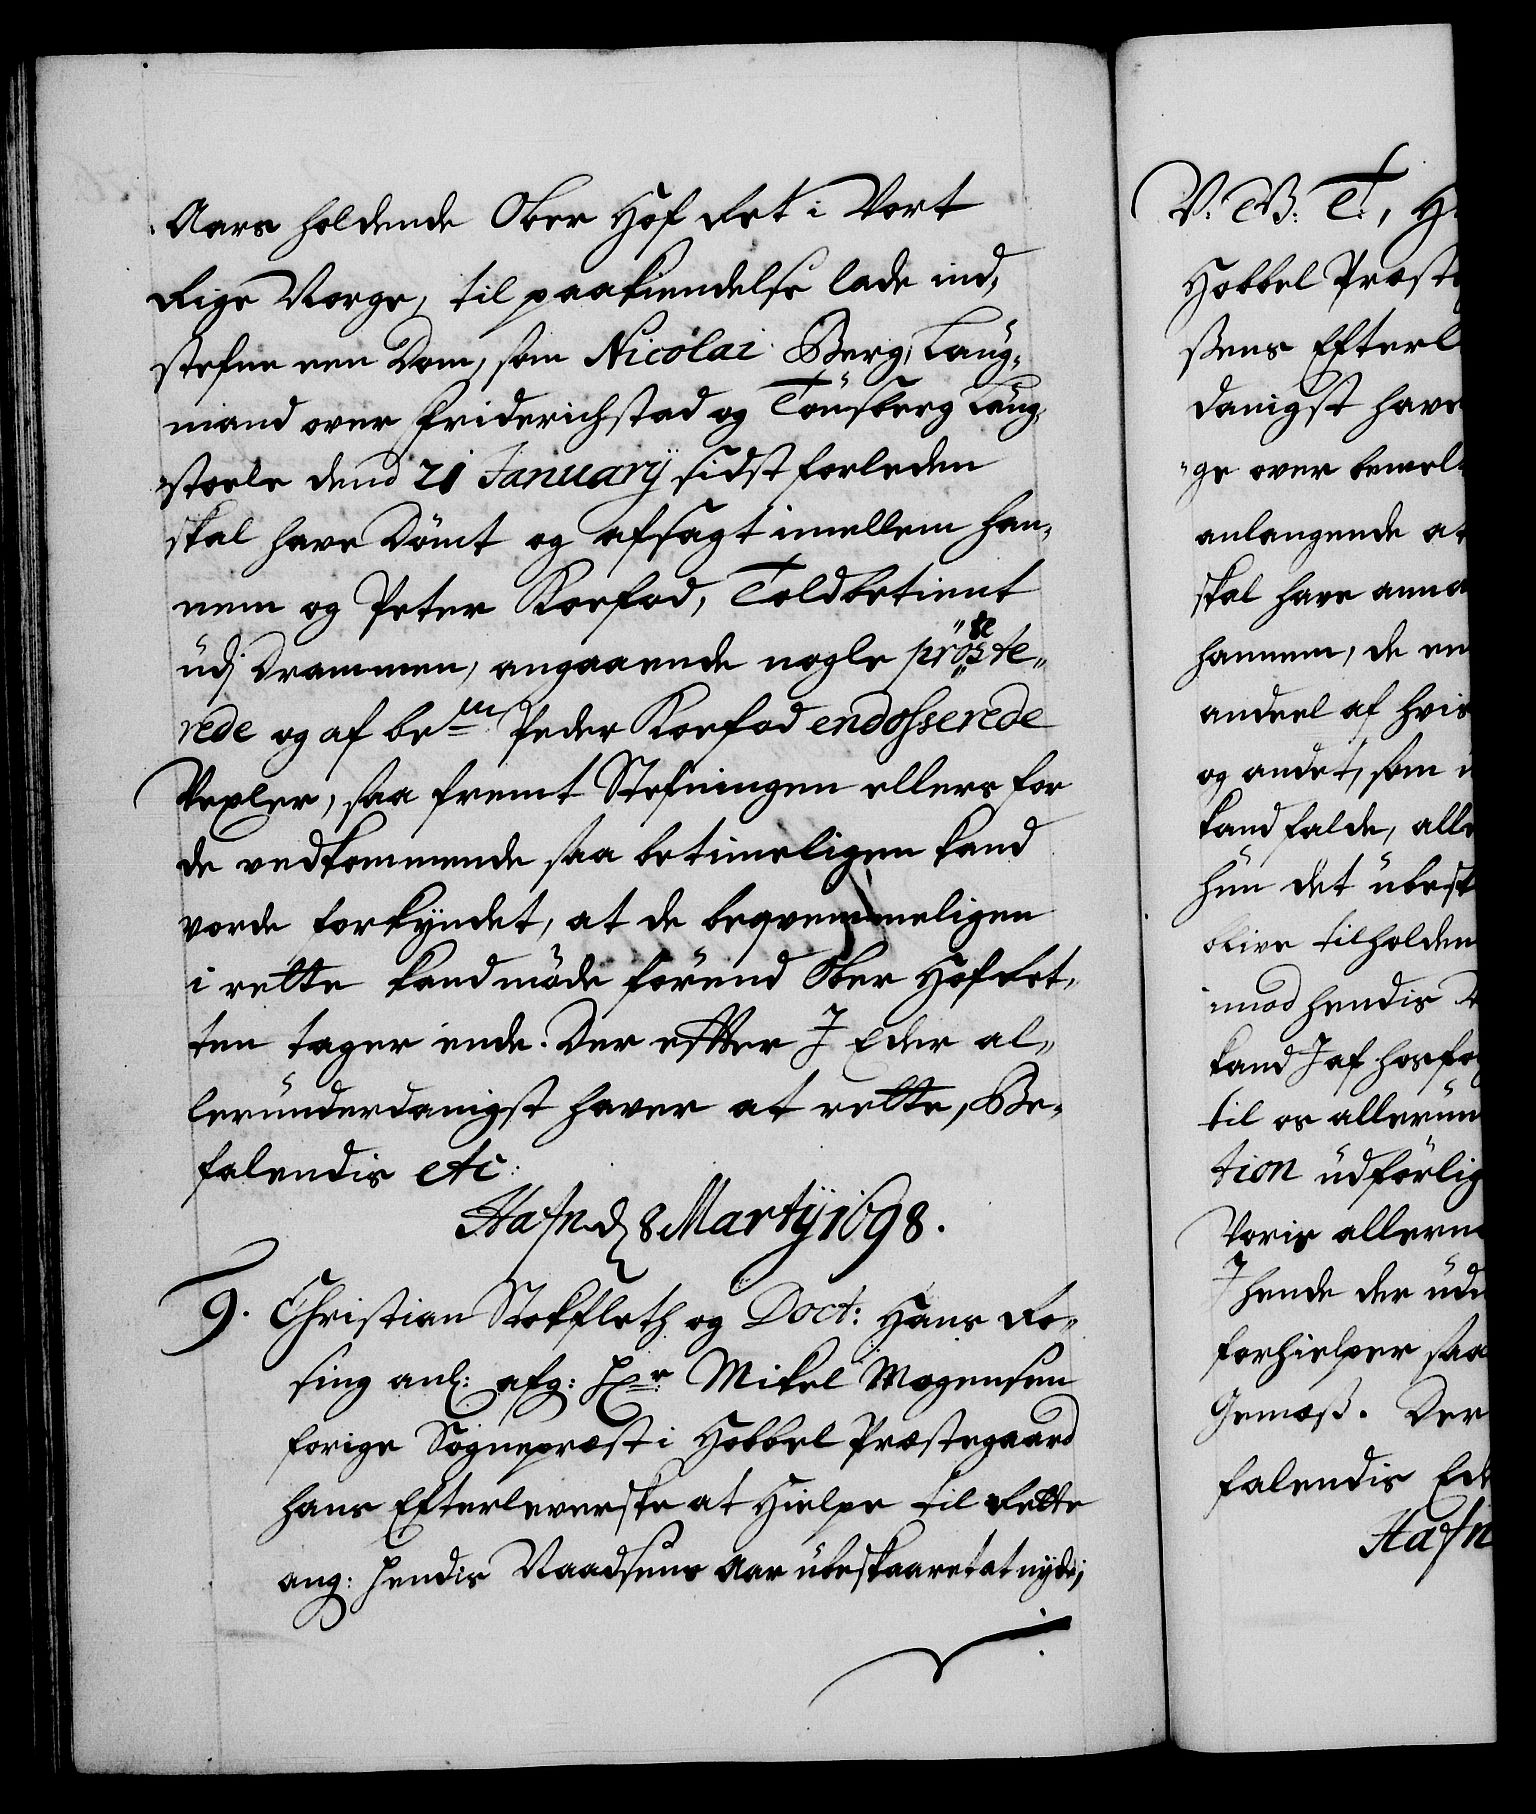 Aars holdende Ober Hof Ret i Vort
Rige Norge, til paakiendelse lade ind,
stefne een Dom, som Nicolai Berg, Laug,
mand over Friderichstad og Tönsberg Laug,
stoele dend 21 Januarij sidst forleden
skal have Dömt og afsagt imellem han,
nem og Peter Korfod, Toldbetient
udj Drammen, angaaende nogle pröste„
rede og af bem.te Peder Korfod endosserede
Vexler, saa fremt Stefningen ellers for
de vedkommende saa betimeligen kand
vorde forkyndet, at de beqvemmeligen
i rette kand möde förend Ober Hofret,
ten tager ende. Der effter I Eder al„
lerunderdanigst haver at rette, Be,
falendis etc:
Hafn. d. 8 Martij 1698.
9. Christian Stokfleth og Doct: Hans Ro„
sing anl: afg: Hr. Mikel Mogensen
forige Sognepræst i Hobbel Præstegaard
hans Efterleverske at Hielpe til Rette
ang: hendis Naadsens Aar ubeskaaret at nyde,
V. G. T., H
Hobbel Præste
sens Efterl
danigst have
ge over bemel,
anlangende at
skal have anna
hannem, de en
andeel af hvis
og andet, som i
kand falde, alle
hun det ubesk
blive tilholden
imod hendis
kand I af hosfø
til os allerun
tion udførlig
Voris allern
I hende der udi
forhielper saa
Gemæs. Der
falendis Ed
Hafn